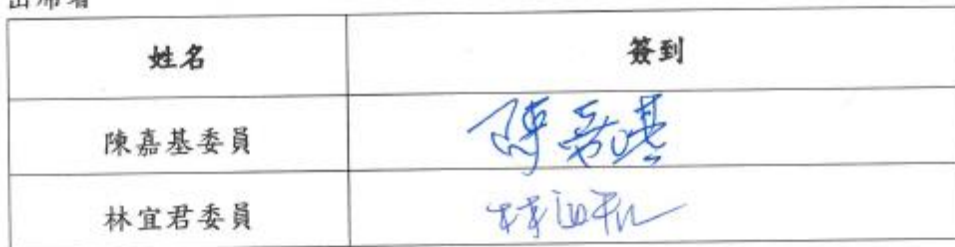 出席者
姓名 簽到
陳嘉基委員 陳嘉基
林宜君委員